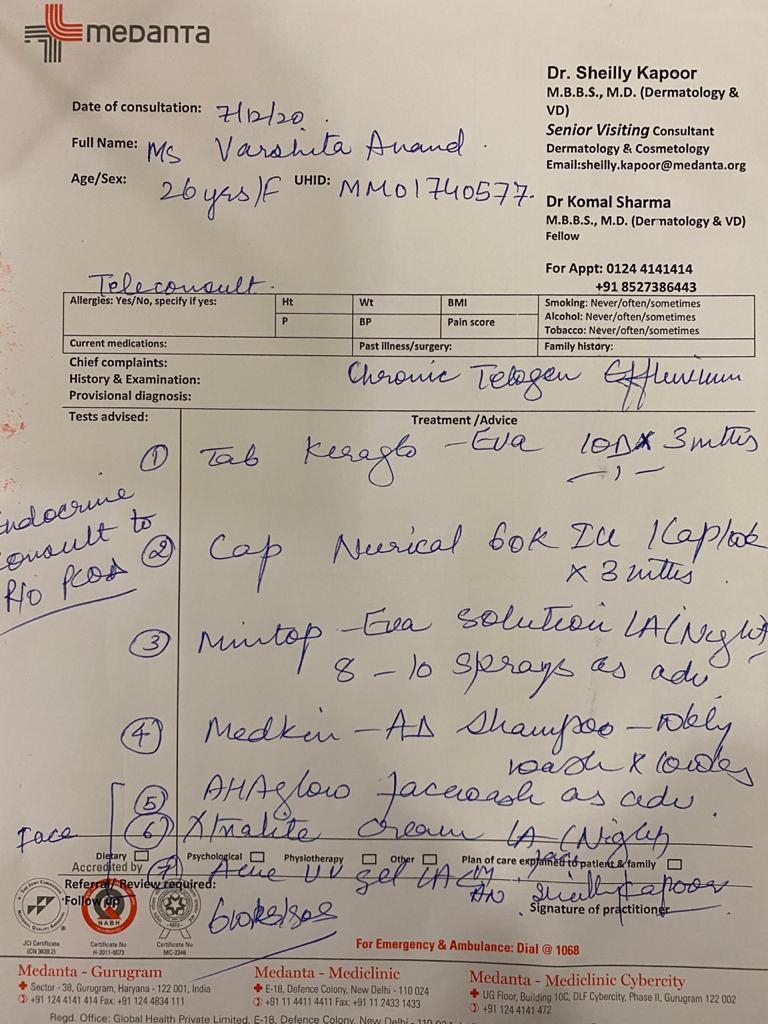 medanta
Dr. Sheilly Kapoor
M.B.B.S., M.D. (Dermatology &
VD)
Senior Visiting Consultant
Dermatology & Cosmetology
Email:sheilly.kapoor@medanta.org
Date of consultation: 7/12/20
Full Name: Ms Varshita Anand
Age/Sex: 26 yrs/F UHID: MM01740577
Dr Komal Sharma
M.B.B.S., M.D. (Dermatology & VD)
Fellow
For Appt: 0124 4141414
+91 8527386443
Teleconsult.
Allergies: Yes/No, specify if yes: Ht Wt BMI Smoking: Never/often/sometimes
Alcohol: Never/often/sometimes
P BP Pain score Tobacco: Never/often/sometimes
Current medications: Past illness/surgery: Family history:
Chief complaints:
History & Examination:
Provisional diagnosis:
Chronic Telogen Effluvium
Tests advised: Treatment /Advice
① Tab Keraglo - Eva 1OD x 3 mths
Endocrine
consult to
R/o PCOD
② Cap Nurical 60K IU 1 Cap/wk
x 3 mths
③ Mintop - Eva solution LA (Night)
8 - 10 sprays as adv
④ Medkin - AD Shampoo -
wash x
⑤ AHAglow facewash as adv.
Face
⑥ Xtnalite cream LA (Night)
Dietary Psychological Physiotherapy Other Plan of care explained to patient & family
Accredited by
⑦ Acne UV gel LA
Referral/ Review required:
Follow up
6 wks/sos
Sheilly Kapoor
Signature of practitioner
NABH
JCI Certificate
(CN 3628.2)
Certificate No
H-2011-0073
Certificate No
MC-2346
For Emergency & Ambulance: Dial @ 1068
Medanta - Gurugram
Sector - 38, Gurugram, Haryana - 122 001, India
+91 124 4141 414 Fax: +91 124 4834 111
Medanta - Mediclinic
E-18, Defence Colony, New Delhi - 110 024
+91 11 4411 4411 Fax: +91 11 2433 1433
Medanta - Mediclinic Cybercity
UG Floor, Building 10C, DLF Cybercity, Phase II, Gurugram 122 002
+91 124 4141 472
Regd. Office: Global Health Private Limited, E-18, Defence Colony, New Delhi - 110 024